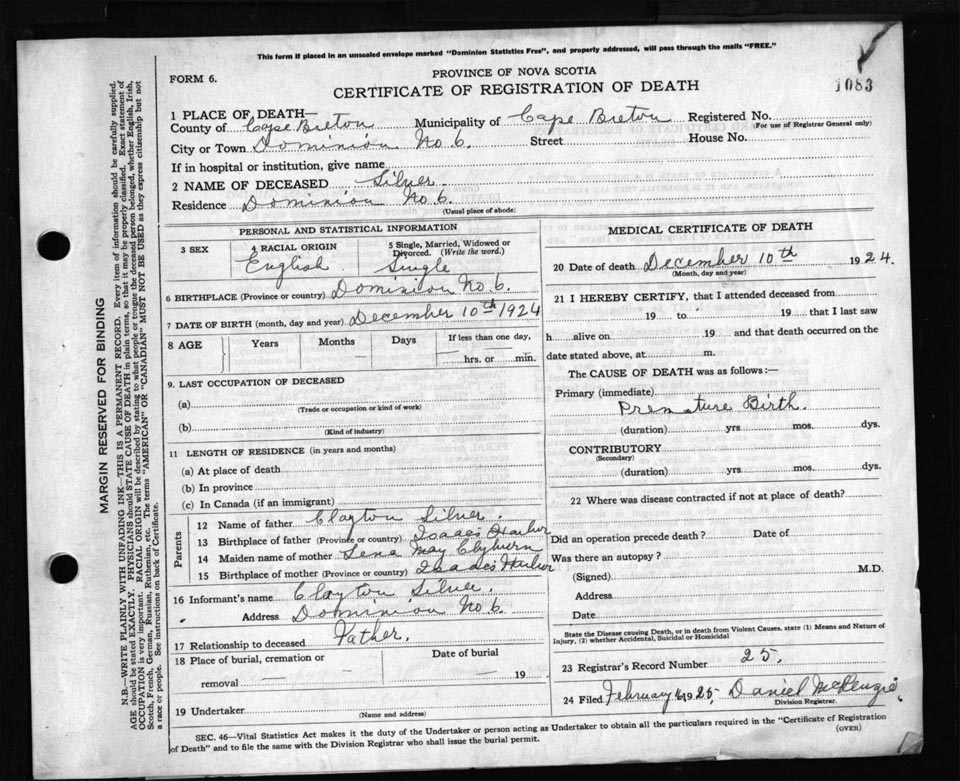 This form if placed in an unsealed envelope marked "Dominion Statistics Free", and properly addressed, will pass through the mails "FREE."
FORM 6.
PROVINCE OF NOVA SCOTIA
CERTIFICATE OF REGISTRATION OF DEATH
1083
1 PLACE OF DEATH—
County of Cape Breton Municipality of Cape Breton Registered No.
(For use of Registrar General only)
City or Town Dominion No 6. Street House No.
If in hospital or institution, give name
2 NAME OF DECEASED Silver.
Residence Dominion No 6.
(Usual place of abode)
PERSONAL AND STATISTICAL INFORMATION
3 SEX
4 RACIAL ORIGIN
English
5 Single, Married, Widowed or Divorced. (Write the word.)
Single
6 BIRTHPLACE (Province or country) Dominion No 6.
7 DATE OF BIRTH (month, day and year) December 10th 1924
8 AGE Years Months Days If less than one day,
hrs. or min.
9. LAST OCCUPATION OF DECEASED
(a)
(Trade or occupation or kind of work)
(b)
(Kind of industry)
11 LENGTH OF RESIDENCE (in years and months)
(a) At place of death
(b) In province
(c) In Canada (if an immigrant)
Parents
12 Name of father Clayton Silver.
13 Birthplace of father (Province or country) Isaacs Harbor
14 Maiden name of mother Lena May Clyburn
15 Birthplace of mother (Province or country) Isaacs Harbor
16 Informant's name Clayton Silver.
Address Dominion No 6.
17 Relationship to deceased Father.
18 Place of burial, cremation or removal
Date of burial
19
19 Undertaker
(Name and address)
MEDICAL CERTIFICATE OF DEATH
20 Date of death December 10th 1924.
(Month, day and year)
21 I HEREBY CERTIFY, that I attended deceased from
19 to 19 that I last saw
h alive on , 19 and that death occurred on the
date stated above, at m.
The CAUSE OF DEATH was as follows:—
Primary (immediate)
Premature Birth.
(duration) yrs mos. dys.
CONTRIBUTORY
(Secondary)
(duration) yrs mos. dys.
22 Where was disease contracted if not at place of death?
Did an operation precede death? Date of
Was there an autopsy?
(Signed) M.D.
Address
Date
State the Disease causing Death, or in death from Violent Causes, state (1) Means and Nature of
Injury, (2) whether Accidental, Suicidal or Homicidal
23 Registrar's Record Number 25.
24 Filed February 1925, Daniel McKenzie
Division Registrar.
SEC. 46—Vital Statistics Act makes it the duty of the Undertaker or person acting as Undertaker to obtain all the particulars required in the "Certificate of Registration
of Death" and to file the same with the Division Registrar who shall issue the burial permit.
(OVER)
MARGIN RESERVED FOR BINDING
N.B.—WRITE PLAINLY WITH UNFADING INK—THIS IS A PERMANENT RECORD. Every item of information should be carefully supplied.
AGE should be stated EXACTLY. PHYSICIANS should STATE CAUSE OF DEATH in plain terms, so that it may be properly classified. Exact statement of
OCCUPATION is very important. RACIAL ORIGIN will be described by stating to what people or tongue the deceased person belonged, whether English, Irish,
Scotch, French, German, Russian, Ruthenian, etc. The terms "AMERICAN" or "CANADIAN" MUST NOT BE USED as they express citizenship but not
a race or people. See instructions on back of Certificate.